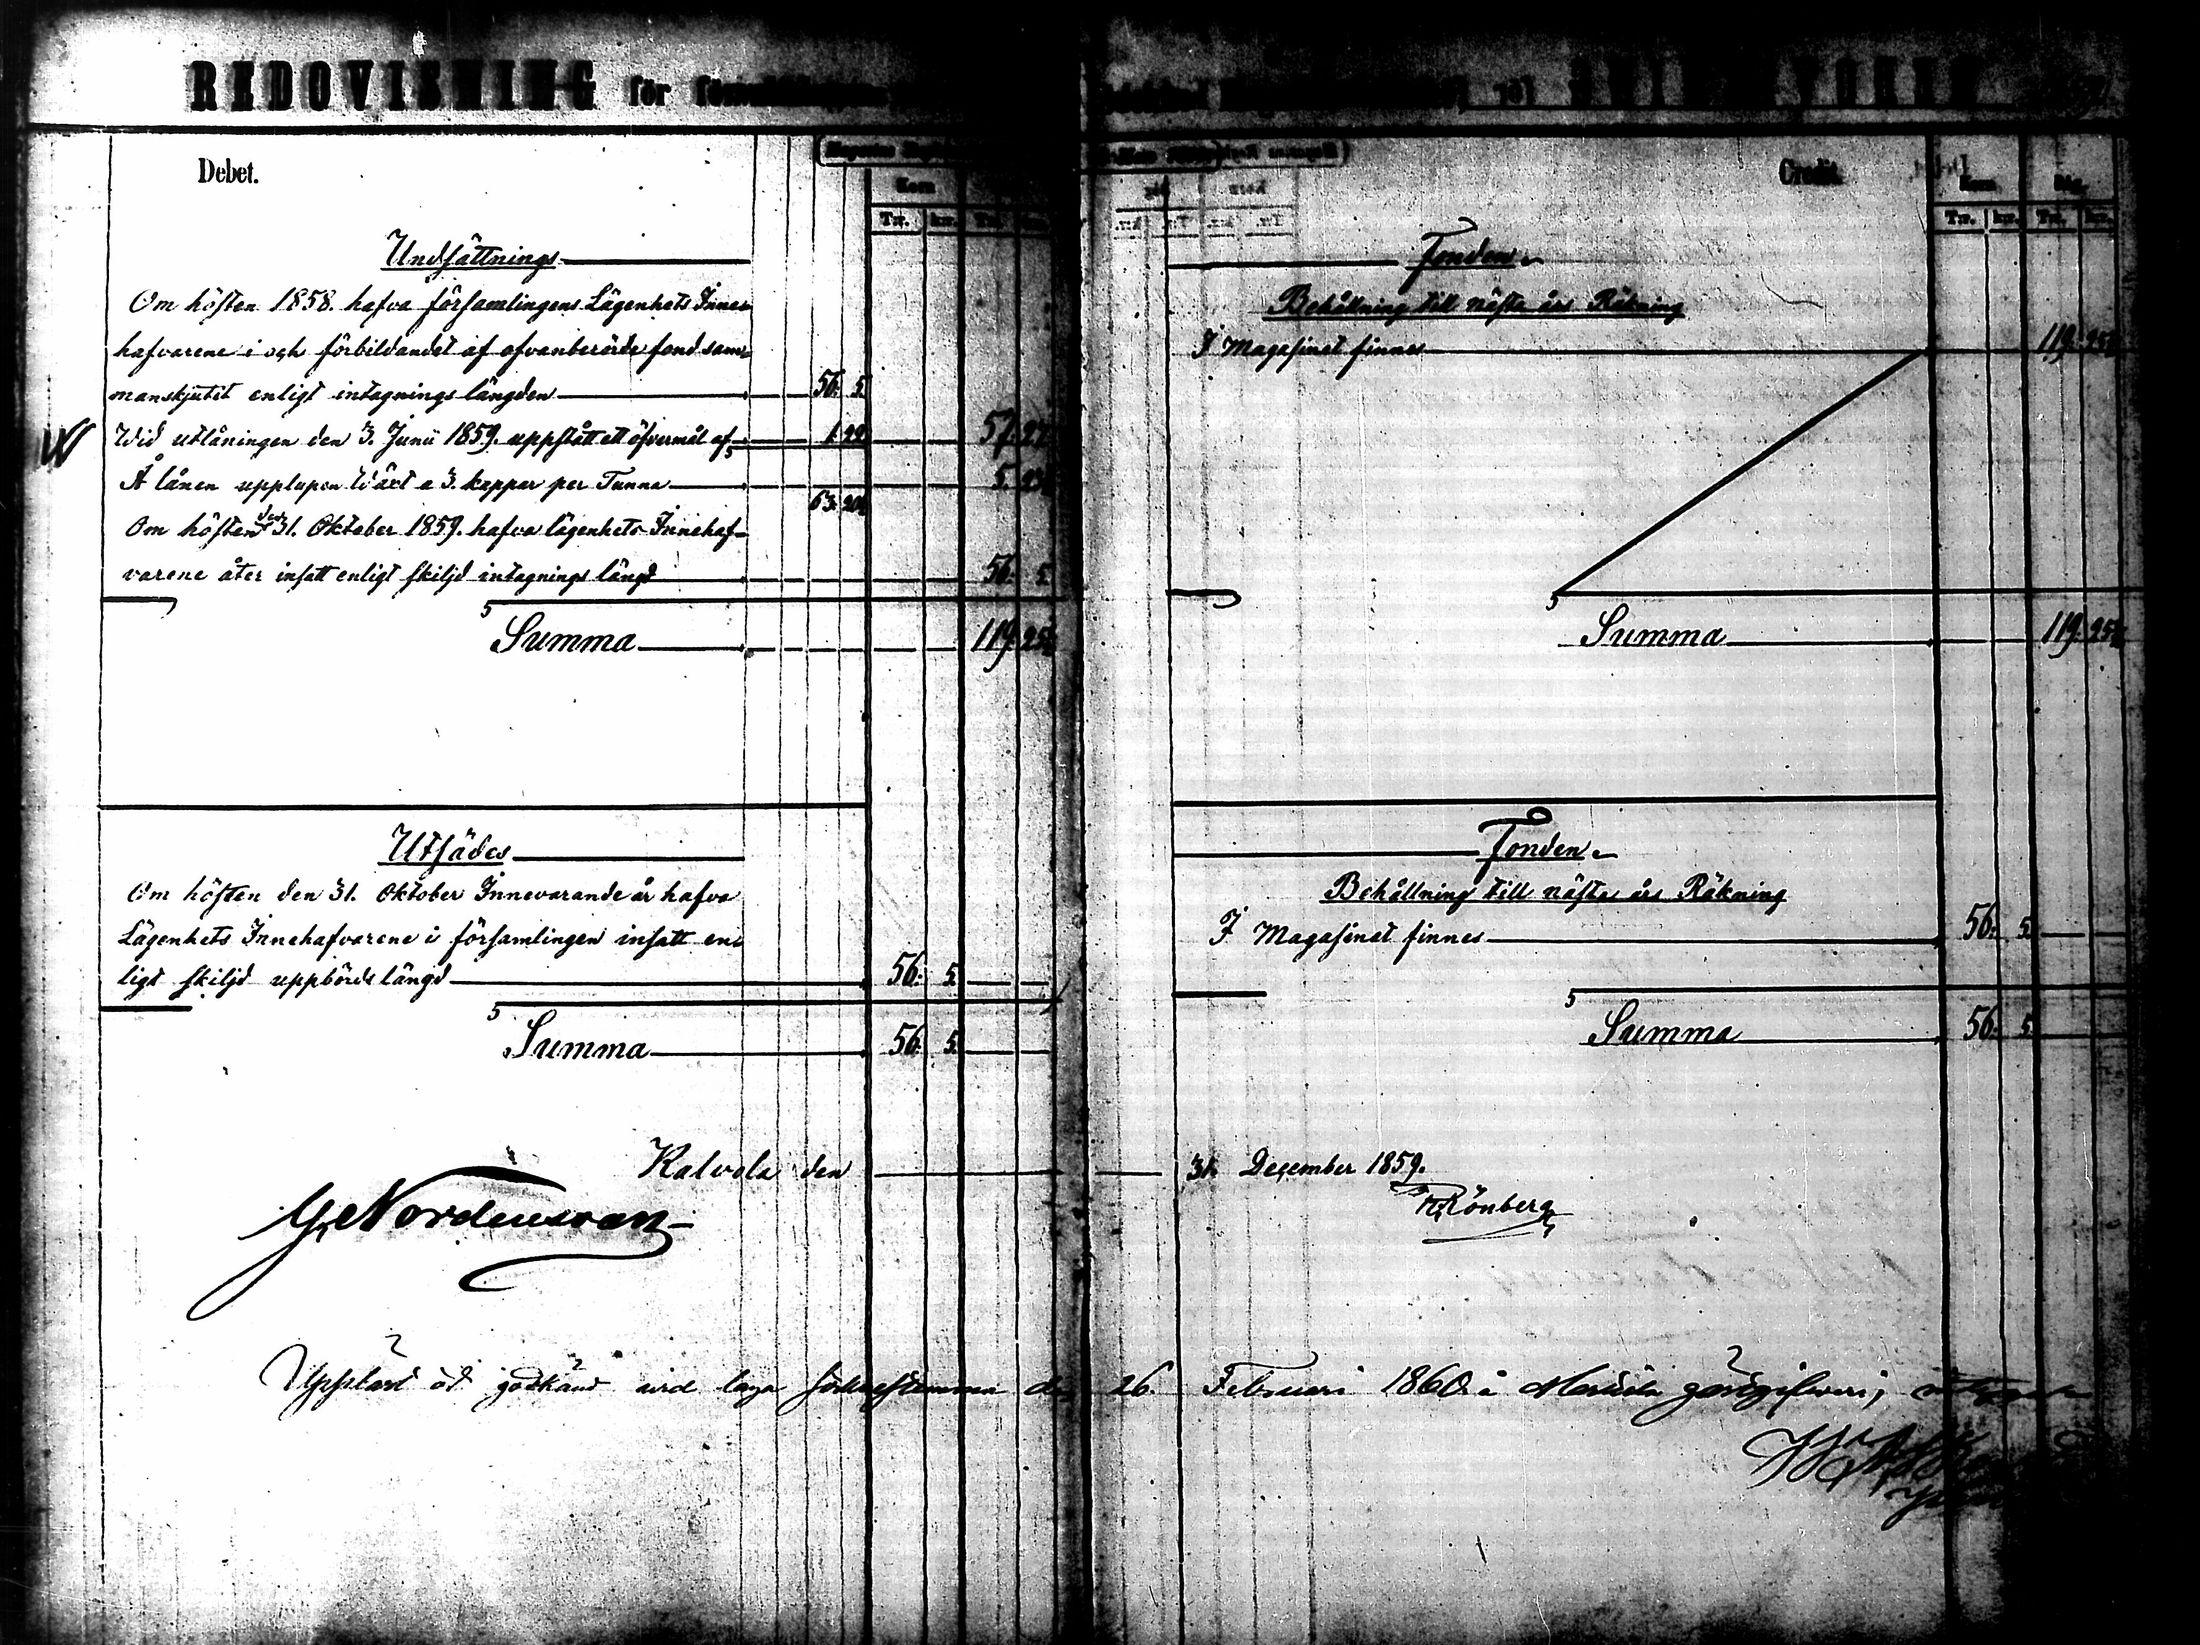 REDOVISNING för
Debet.
Korn
Tr. kr. Tr.
Undsättnings
Om hösten 1858. hafva församlingens Lägenhets Inne-
hafvarene i och förbildandet af ofvanberörde fond sam-
manskjutit enligt intagnings längden 56. 5.
Wid utlåningen den 3. Junii 1859. uppstått ett öfvermål af 1. 22 57. 27
Å lånen upplupen Wäxt a 3. kappar per Tunna 5.
63.
Om hösten den 31. Oktober 1859. hafva lägenhets Innehaf-
varene åter insatt enligt skiljd intagnings längd 56. 5.
Summa 119. 25½
Utsädes
Om hösten den 31. Oktober Innevarande år hafva
Lägenhets Innehafvarene i församlingen insatt en-
ligt skiljd uppbörds längd 56. 5.
Summa 56. 5.
Kalvola den
G. Nordensvan
Credit.
Korn Råg
Tr. kr. Tr. kr.
Fonden
Behållning till nästa års Räkning
I Magasinet finnes 119. 25½
Summa 119. 25½
Fonden
Behållning till nästa års Räkning
I Magasinet finnes 56. 5.
Summa 56. 5.
31. December 1859.
Rönberg
Uppläst och godkänd vid laga sockenstämma den 26. Februari 1860. i gästgifveri,